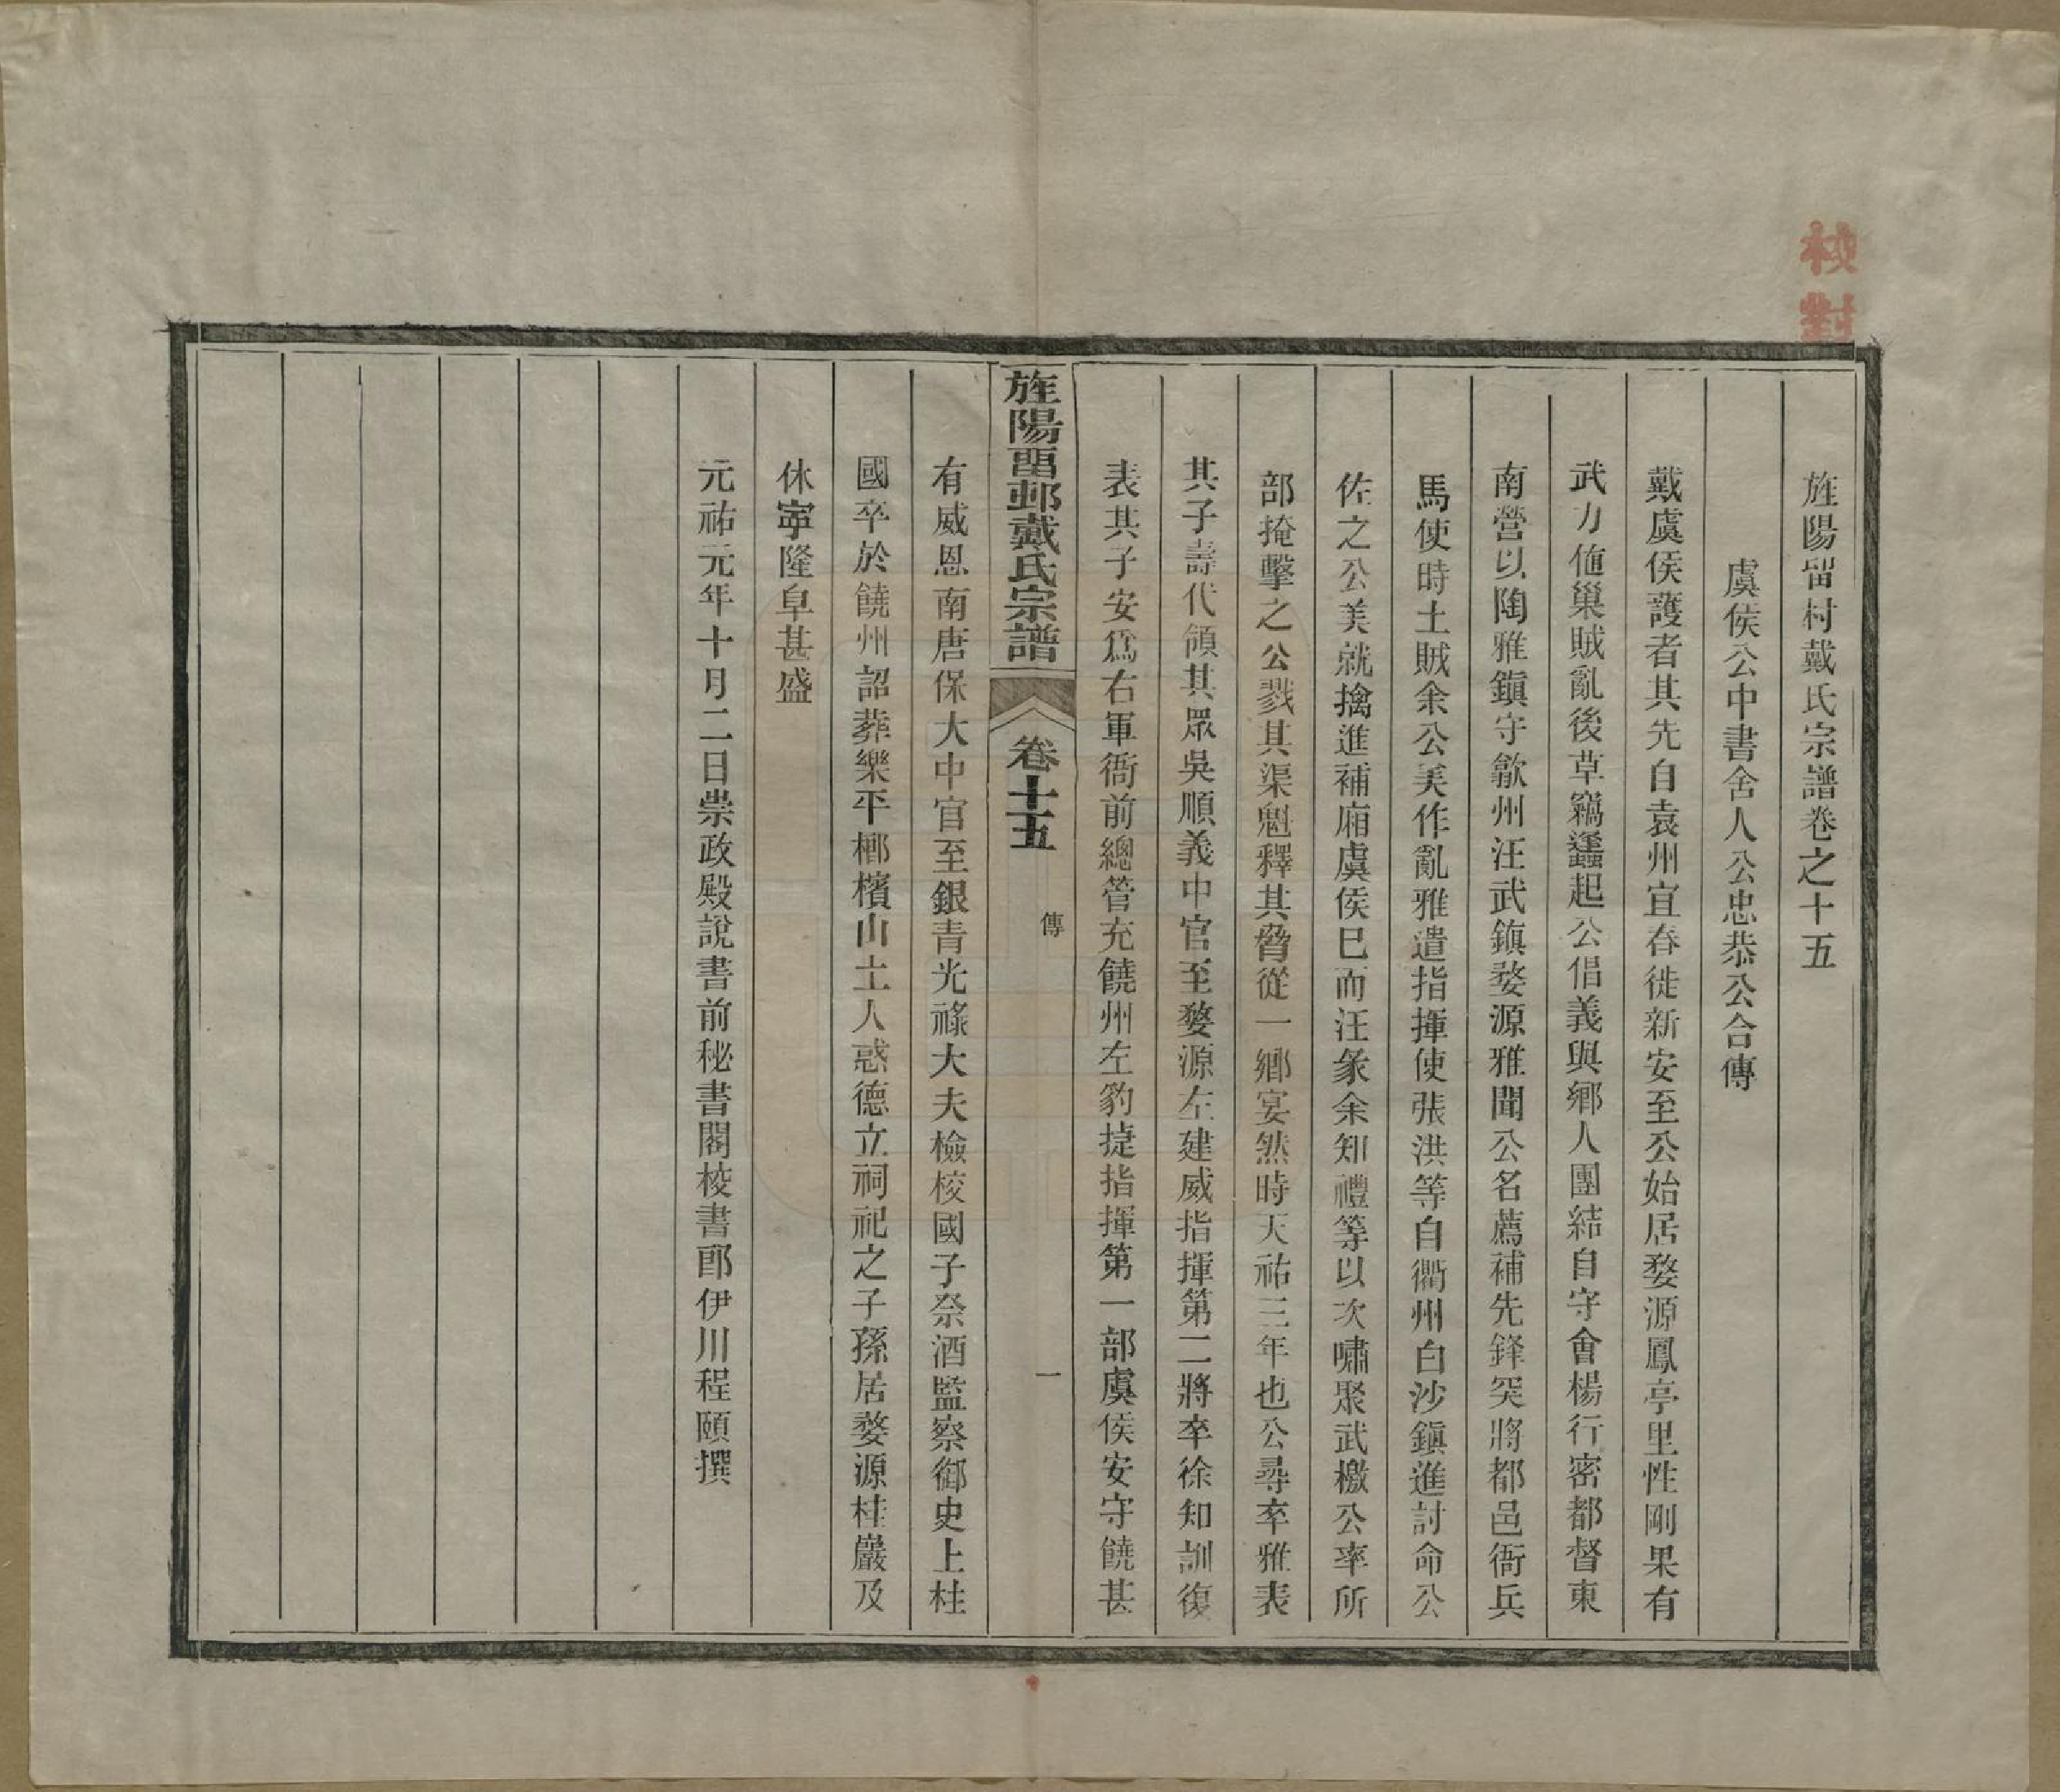 校對
旌陽留村戴氏宗譜卷之十五
虞侯公中書舍人公忠恭公合傳
戴虞侯護者其先自袁州宜春徙新安至公始居婺源鳳亭里性剛果有
武力偹巢賊亂後草竊蠭起公倡義與鄉人團結自守會楊行密都督東
南營以陶雅鎭守歙州汪武鎮婺源雅聞公名薦補先鋒突將都邑衙兵
馬使時土賊余公美作亂雅遣指揮使張洪等自衢州白沙鎭進討命公
佐之公美就擒進補廂虞侯巳而汪彖余知禮等以次嘯聚武檄公率所
部掩擊之公戮其渠魁釋其脅從一鄉宴然時天祐三年也公尋卒雅表
其子壽代領其眾吳順義中官至婺源左建威指揮第二將卒徐知訓復
表其子安爲右軍衙前總管充饒州左豹捷指揮第一部虞侯安守饒甚
旌陽畱邨戴氏宗譜
卷十五
傳
一
有威恩南唐保大中官至銀青光祿大夫檢校國子祭酒監察御史上柱
國卒於饒州詔葬樂平槨檳山土人惑德立祠祀之子孫居婺源桂巖及
休寧隆阜甚盛
元祐元年十月二日崇政殿說書前秘書閣校書郎伊川程頤撰